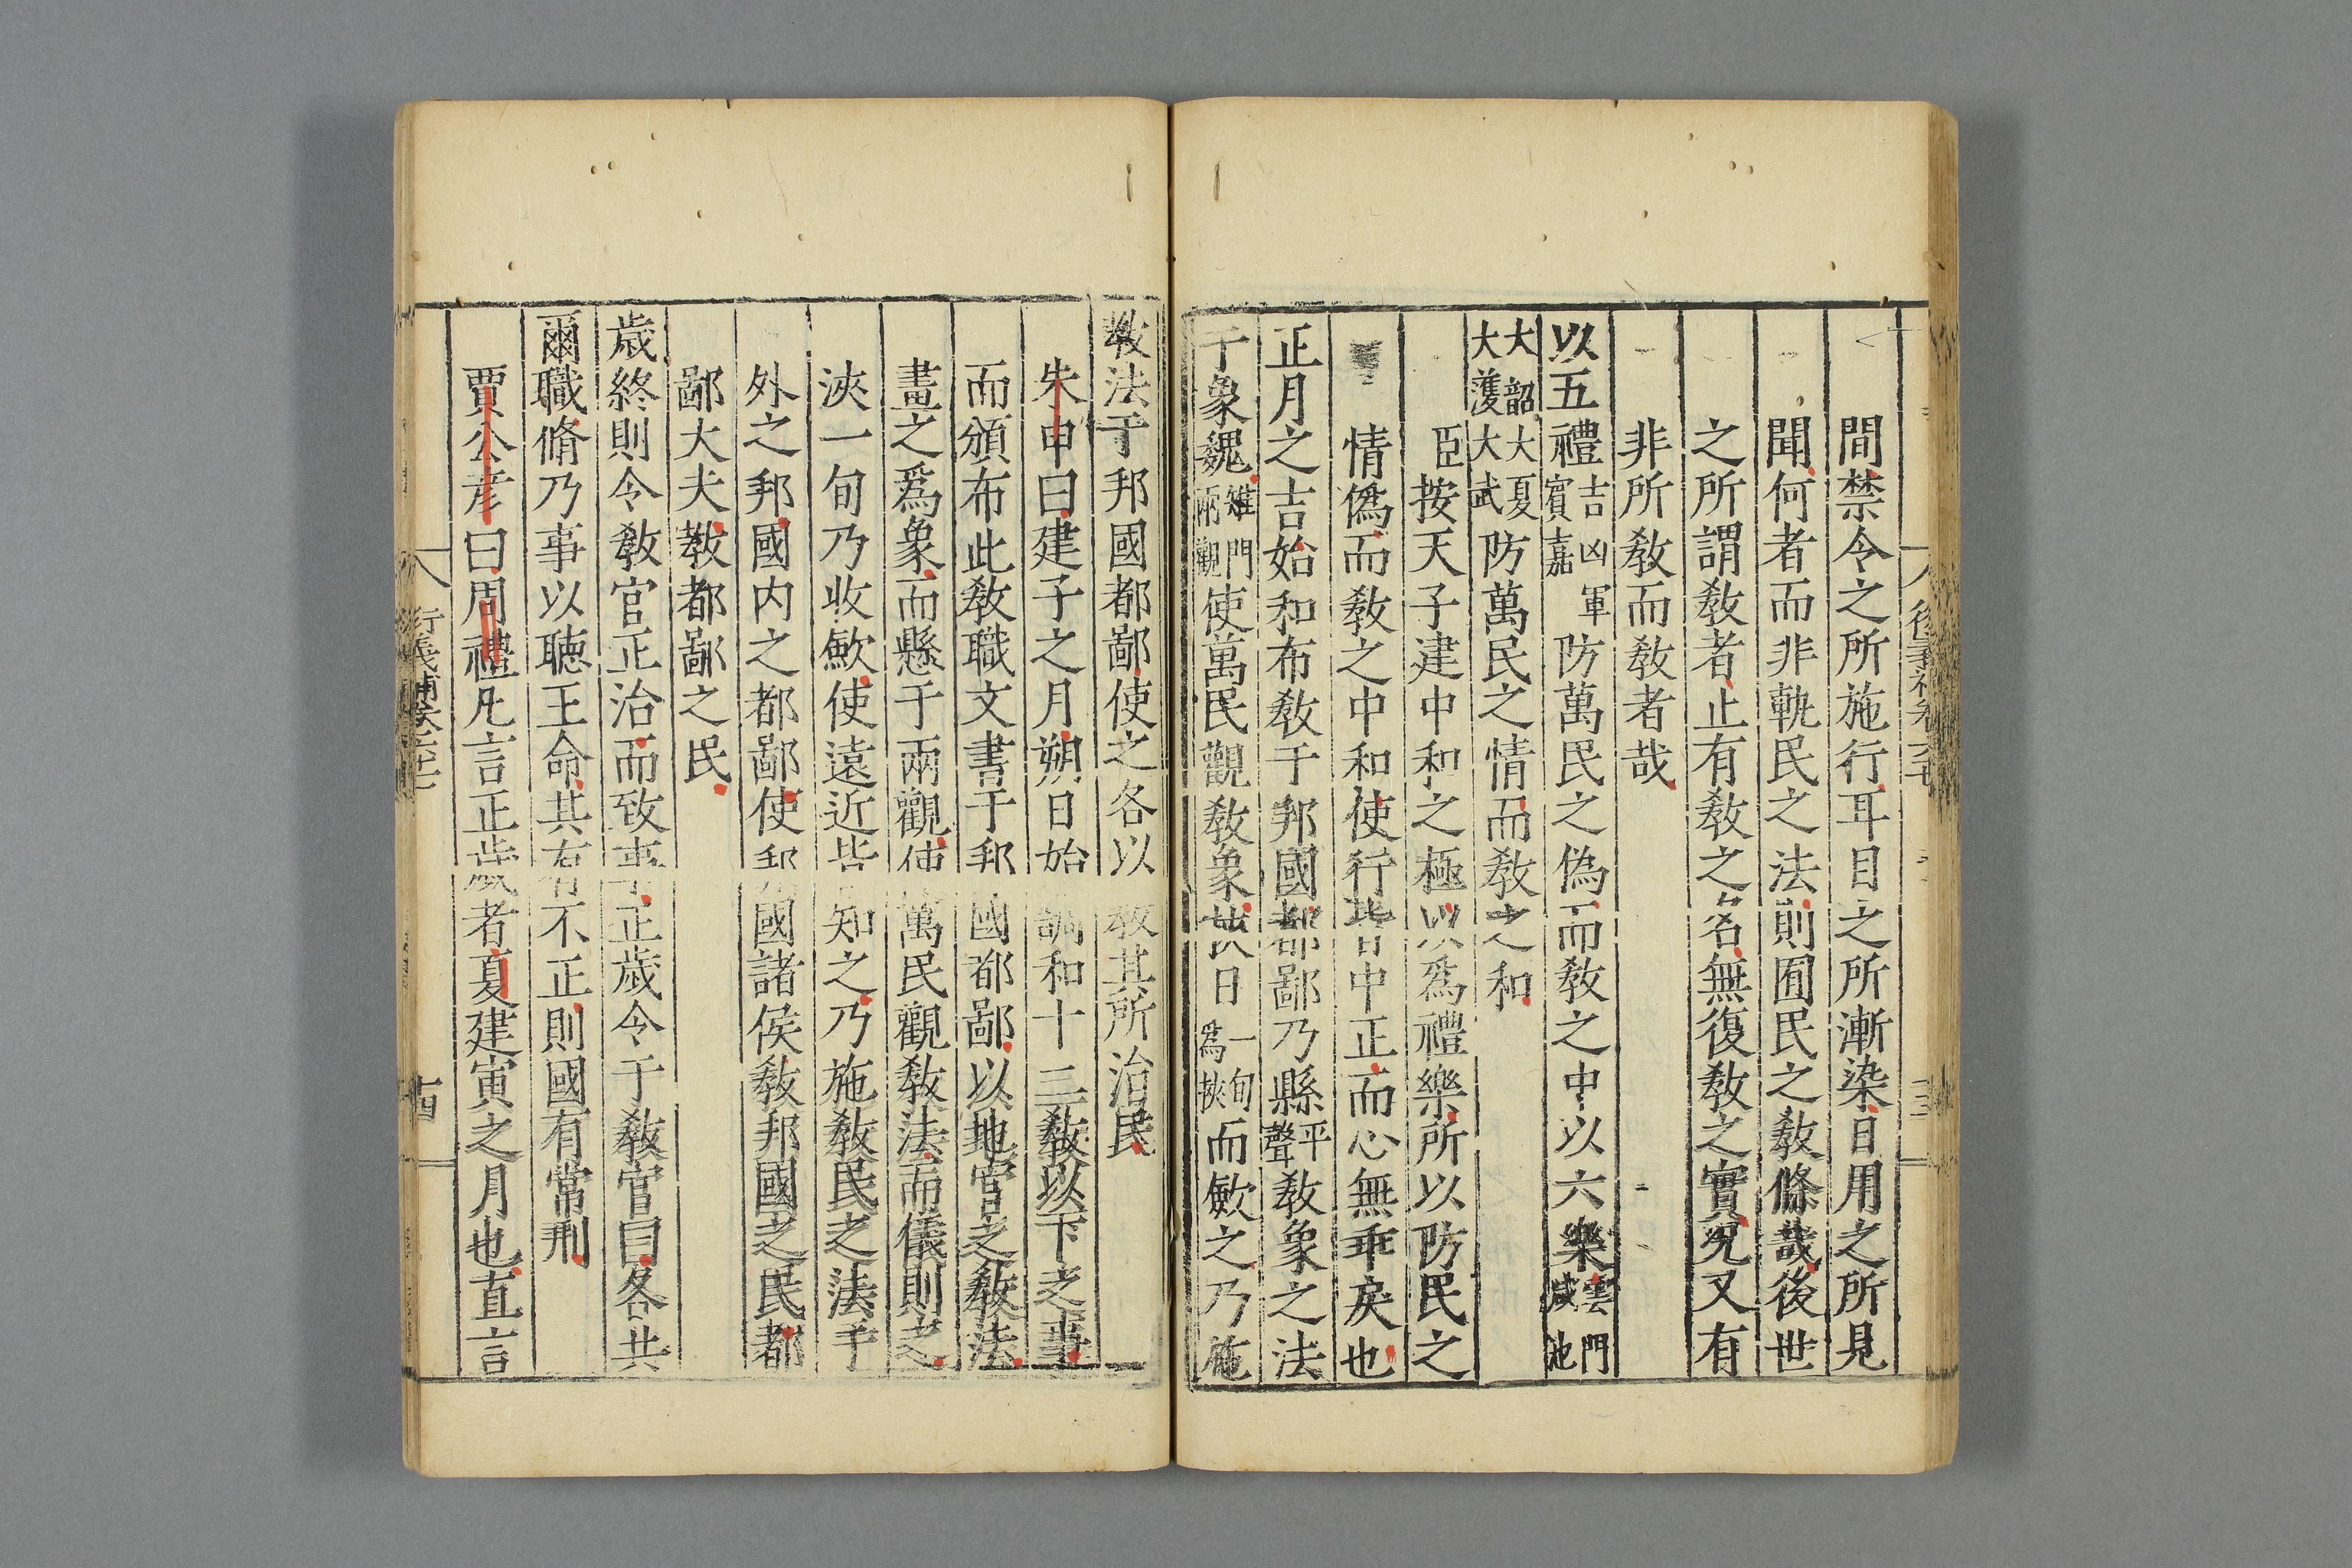 間禁令之所施行耳目之所漸染日用之所見
聞何者而非軌民之法則囿民之教條哉後世
之所謂敎者止有敎之名無復敎之實況又有
非所敎而敎者哉
以五禮吉凶軍賓嘉防萬民之偽而敎之中以六樂雲門咸池
大韶大夏大濩大武防萬民之情而敎之和
臣按天子建中和之極以爲禮樂所以防民之
情僞而敎之中和使行皆中正而心無乖戾也
正月之吉始和布敎于邦國都鄙乃縣平聲敎象之法
于象魏雉門兩觀使萬民觀敎象挾日一旬爲挾而斂之乃施
敎法于邦國都鄙使之各以敎其所治民
朱申曰建子之月朔日始調和十二敎以下之事
而頒布此敎職文書于邦國都鄙以地官之敎法
畫之爲象而懸于兩觀使萬民觀敎法而儀則之
浹一旬乃收斂使遠近皆知之乃施敎民之法于
外之邦國内之都鄙使邦國諸侯敎邦國之民都
鄙大夫敎都鄙之民
歲終則令敎官正治而致事正歲令于敎官曰各共
爾職脩乃事以聴王命其有不正則國有常刑
賈公彦曰周禮凡言正歲者夏建寅之月也直言
十四